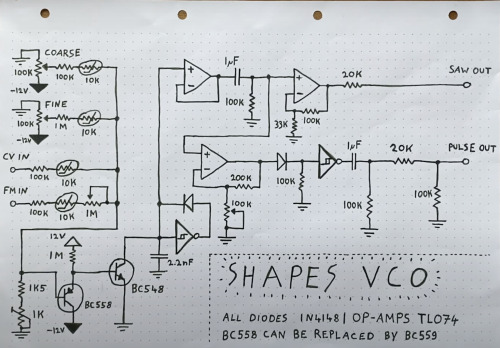 COARSE
100K
100K
10K
-12V
FINE
100K
1M
10K
-12V
CV IN
100K
10K
FM IN
100K
10K
1M
12V
1M
1K5
1K
BC558
-12V
BC548
2.2nF
1µF
100K
+
-
+
-
33K
100K
20K
SAW OUT
+
-
200K
100K
100K
1µF
100K
20K
100K
PULSE OUT
SHAPES VCO
ALL DIODES 1N4148 | OP-AMPS TL074
BC558 CAN BE REPLACED BY BC559